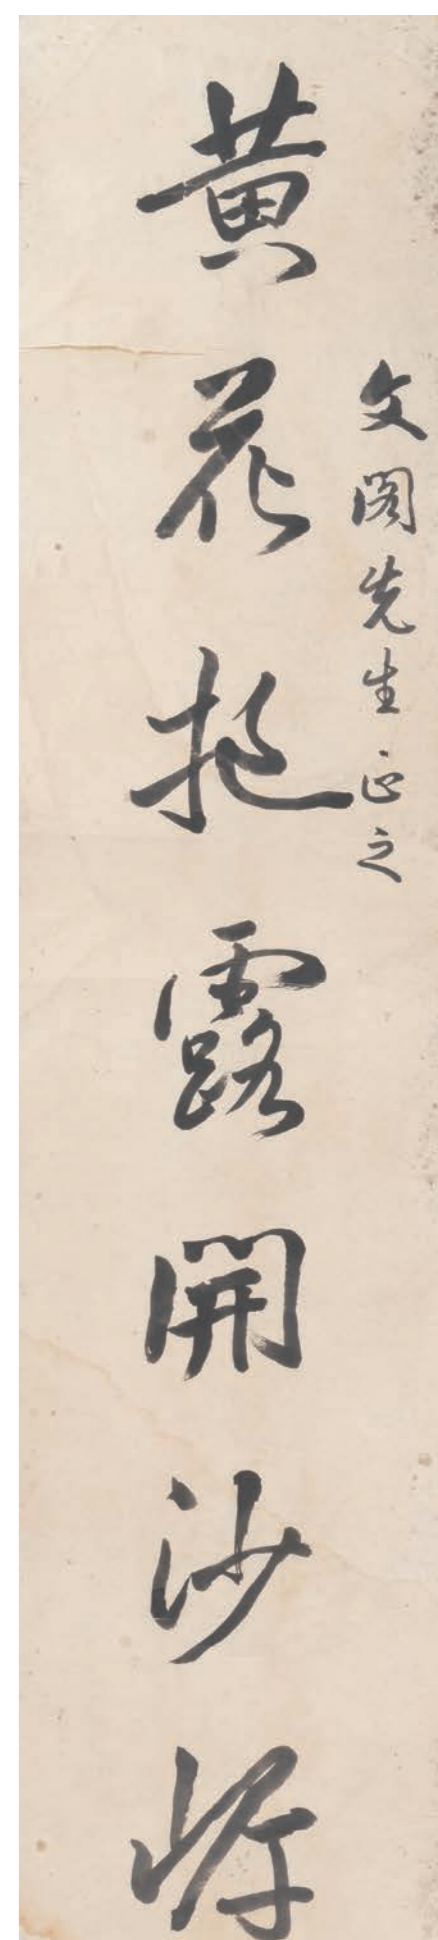 文閣先生正之
黄花挹露開沙岸